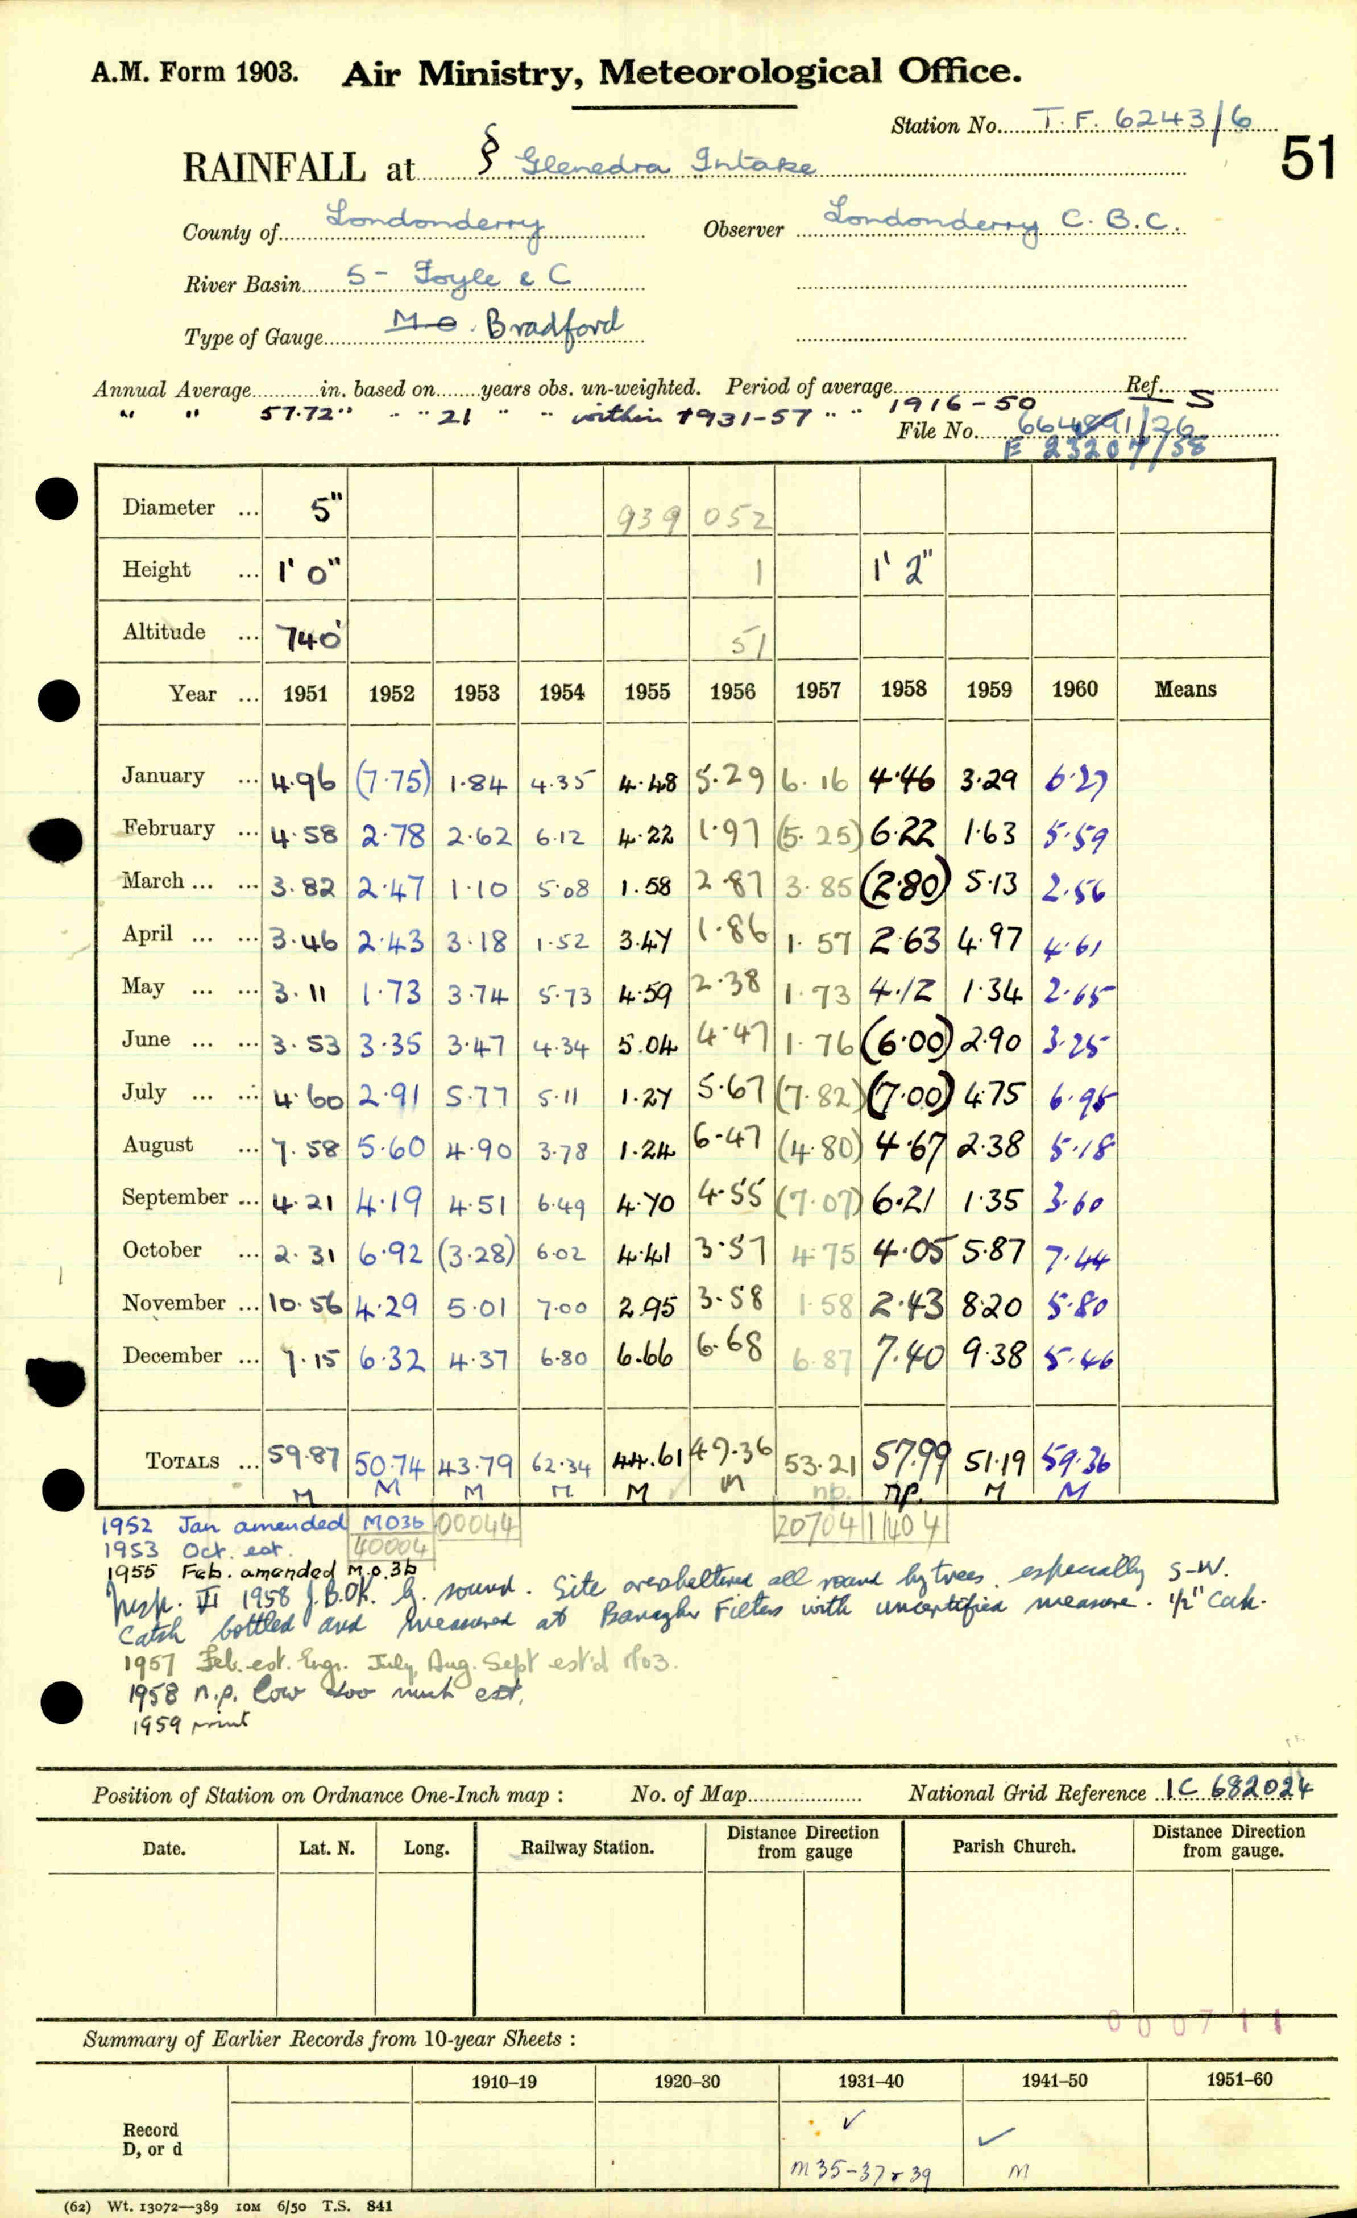 A.M. Form 1903. Air Ministry, Meteorological Office.
Station No. T.F. 6243/6
51
RAINFALL at § Glenedra Intake
County of Londonderry Observer Londonderry C.B.C.
River Basin 5- Foyle & C
Type of Gauge M O. Bradford
Annual Average in. based on years obs. un-weighted. Period of average Ref.
" " 57.72" " " 21 " " within 1931-57 " " 1916-50 S
File No. 664891/26
E 23207/58
Diameter ... 5" 939 052
Height ... 1' 0" 1 1' 2"
Altitude ... 740' 51
Year ... 1951 1952 1953 1954 1955 1956 1957 1958 1959 1960 Means
January ... 4.96 (7.75) 1.84 4.35 4.48 5.29 6.16 4.46 3.29 6.27
February ... 4.58 2.78 2.62 6.12 4.22 1.97 (5.25) 6.22 1.63 5.59
March ... ... 3.82 2.47 1.10 5.08 1.58 2.87 3.85 (2.80) 5.13 2.56
April ... ... 3.46 2.43 3.18 1.52 3.47 1.86 1.57 2.63 4.97 4.61
May ... ... 3.11 1.73 3.74 5.73 4.59 2.38 1.73 4.12 1.34 2.65
June ... ... 3.53 3.35 3.47 4.34 5.04 4.47 1.76 (6.00) 2.90 3.25
July ... ... 4.60 2.91 5.77 5.11 1.27 5.67 (7.82) (7.00) 4.75 6.95
August ... 7.58 5.60 4.90 3.78 1.24 6.47 (4.80) 4.67 2.38 5.18
September ... 4.21 4.19 4.51 6.49 4.70 4.55 (7.07) 6.21 1.35 3.60
October ... 2.31 6.92 (3.28) 6.02 4.41 3.57 4.75 4.05 5.87 7.44
November ... 10.56 4.29 5.01 7.00 2.95 3.58 1.58 2.43 8.20 5.80
December ... 7.15 6.32 4.37 6.80 6.66 6.68 6.87 7.40 9.38 5.46
TOTALS ... 59.87 50.74 43.79 62.34 44.61 49.36 53.21 57.99 51.19 59.36
M M M M M m np. np. M M
1952 Jan amended M03b 00044 20704 11404
1953 Oct. est. 40004
1955 Feb. amended M.O.3b
Insp. VI 1958 J.B.OK. G. sound. Site oversheltered all round by trees especially S-W.
Catch bottled and measured at Banagher Filters with uncertified measure. 1/2" Cah.
1957 Feb. est. Engr. July, Aug. Sept est'd M03.
1958 n.p. low too much est.
1959 print
Position of Station on Ordnance One-Inch map : No. of Map National Grid Reference IC 682024
Date. Lat. N. Long. Railway Station. Distance from gauge Direction Parish Church. Distance from gauge. Direction
000711
Summary of Earlier Records from 10-year Sheets :
1910–19 1920–30 1931–40 1941–50 1951–60
Record ✓ ✓
D, or d
m 35-37 & 39 m
(62) Wt. 13072—389 10M 6/50 T.S. 841